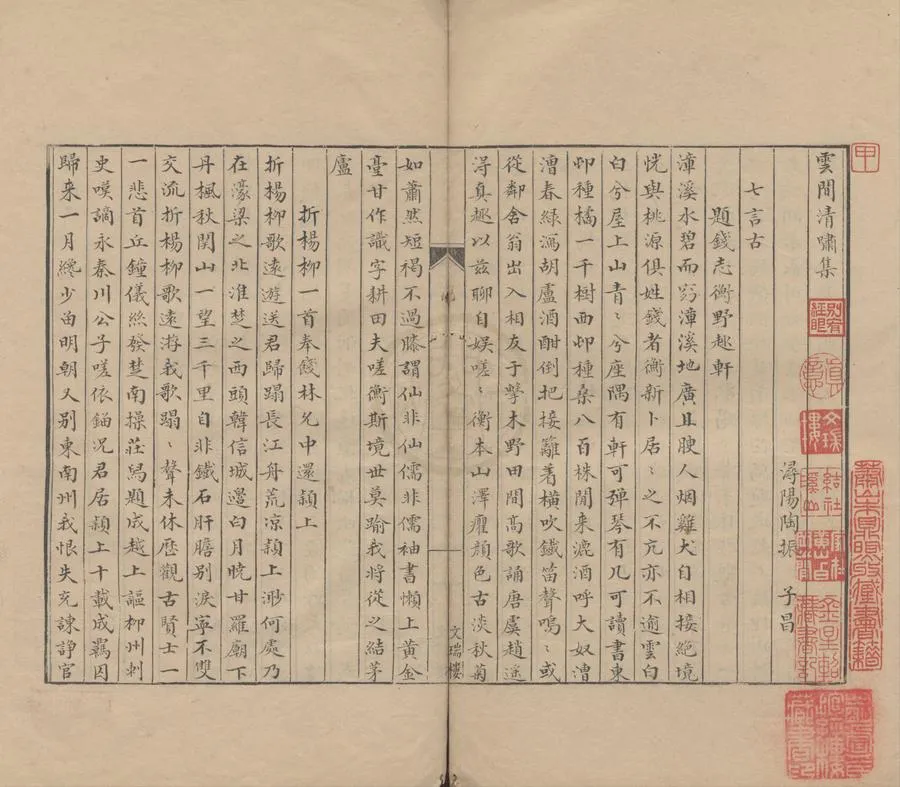 雲間清嘯集
潯陽陶振 子昌
七言古
題錢志衡野趣軒
漳溪水碧而窈漳溪地廣且腴人烟雞犬自相接絕境
恍與桃源俱姓錢者衡新卜居〻之不亢亦不逾雲白
白兮屋上山青〻兮座隅有軒可彈琴有几可讀書東
卯種橘一千樹西卯種桑八百株閒来漉酒呼大奴漕
漕春綠滿胡盧酒酣倒把接䍦着横吹鐵笛聲嗚〻或
從鄰舍翁出入相友于擊木野田間高歌誦唐虞趙遥
淂真趣以兹聊自娱嗟〻衡本山澤癯顔色古淡秋菊
如蕭然短褐不過膝謂仙非仙儒非儒袖書懶上黄金
臺甘作識字耕田夫嗟衡斯境世莫踰我將從之结茅
廬
折楊柳一首奉餞林允中還頴上
折楊柳歌遠遊送君歸蹋長江舟荒凉頴上渺何處乃
在濠梁之北淮楚之西頭韓信城邊白月曉甘羅廟下
丹楓秋関山一望三千里自非鐵石肝膽别淚寧不雙
交流折楊柳歌遠游我歌蹋〻聲未休歴觀古賢士一
一悲首丘鐘儀絲發楚南操莊舄題成越上謳柳州刺
史嘆謫永秦川公子嗟依錨况君居頴上十載成羈囚
歸来一月纔少畄明朝又别東南州我恨失充諫諍官
文瑞樓
甲
别有
經眼
文瑞
樓
結社
溪山
家在
黄山白
岳之間
金星軺
藏書記